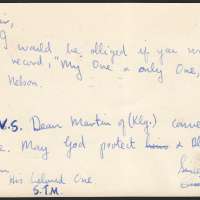 I would be obliged if you w
record, "My One & only One,
Nelson.
V.S. Dean Martin of (Klg.)
May God protect him & Bl
His Beloved One
S.T.M.